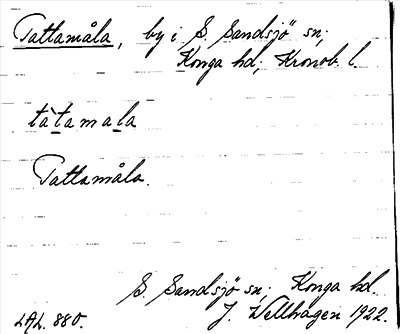 Tattamåla, by i S. Sandsjö sn;
Konga hd; Kronob. l.
tàtamala
Tattamåla.
S. Sandsjö sn; Konga hd.
LAL. 880. J. Wellhagen 1922.